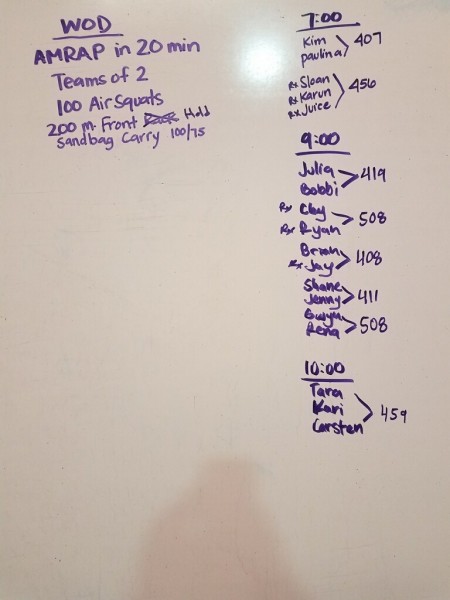 WOD
AMRAP in 20 min
Teams of 2
100 Air Squats
200 m. Front Hold
Sandbag Carry 100/75
7:00
Kim
paulina 407
Rx Sloan
Rx Karun 456
Rx Juice
9:00
Julia 419
Bobbi
Rx Clay 508
Rx Ryan
Brian 408
Rx Jay
Shane 411
Jenny
Gwyn 508
Rena
10:00
Tara
Kari 459
Carsten